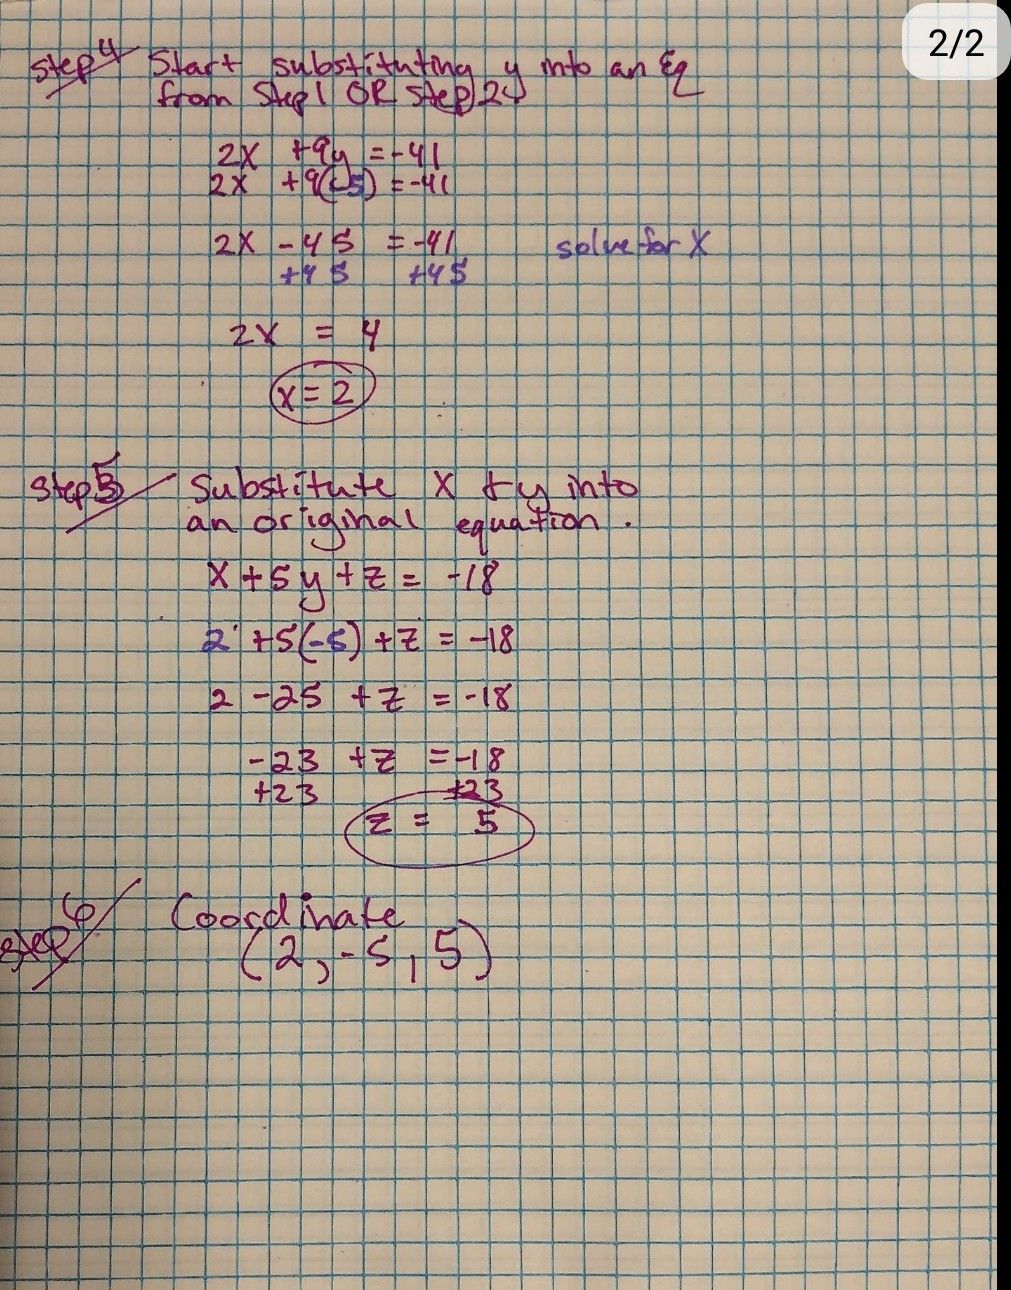 2/2
Step 4 Start substituting y into an Eq
from Step 1 OR Step 2
2x +9y = -41
2x +9(-5) = -41
2x - 45 = -41 solve for X
+45 +45
2x = 4
x = 2
Step 5 Substitute x + y into
an original equation.
x + 5y + z = -18
2 + 5(-5) + z = -18
2 - 25 + z = -18
-23 + z = -18
+23 +23
z = 5
Step 6 Coordinate
(2, -5, 5)